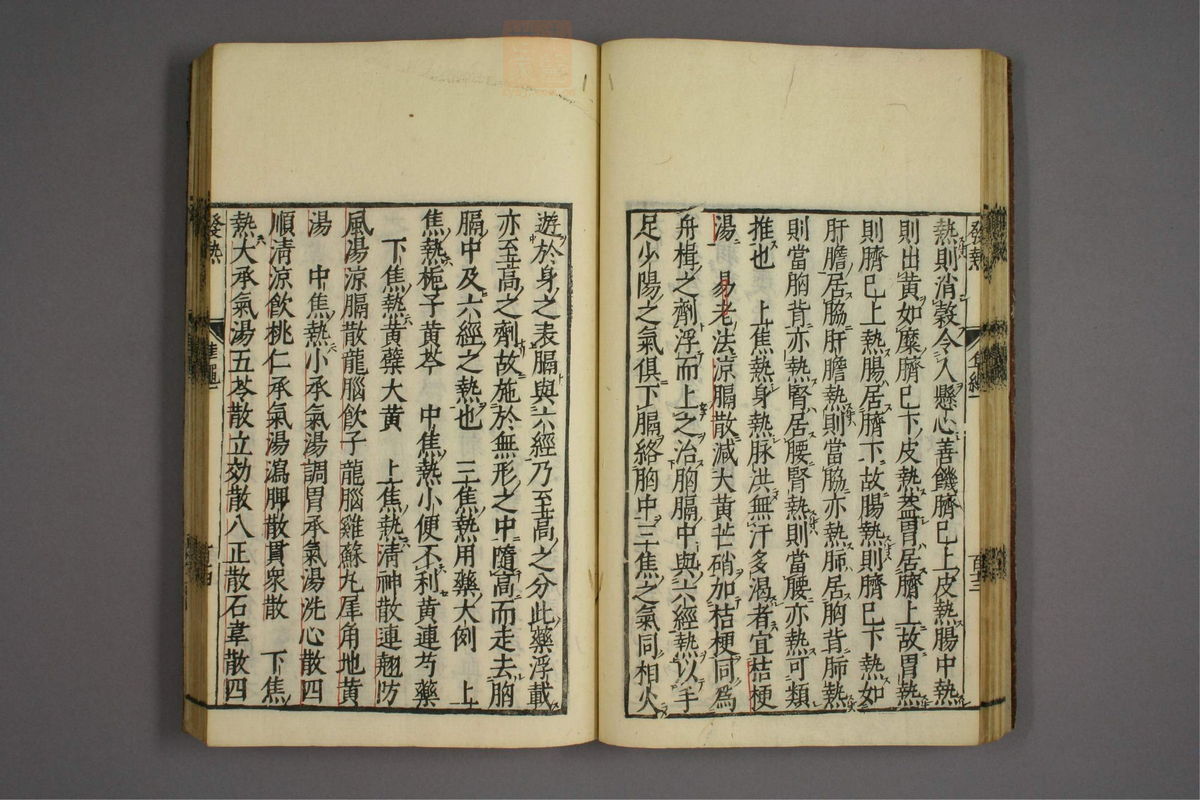 熱則消穀令人懸心善饑臍已上皮熱腸中熱
則出黄如糜臍已下皮熱蓋胃居臍上故胃熱
則臍已上熱腸居臍下故腸熱則臍已下熱如
肝膽居脇肝膽熱則當脇亦熱肺居胸背肺熱
則當胸背亦熱腎居腰腎熱則當腰亦熱可類
推也　上焦熱身熱脉洪無汗多渴者宜桔梗
湯　易老法涼膈散減大黄芒硝加桔梗同為
舟楫之劑浮而上之治胸膈中與六經熱以手
足少陽之氣俱下膈絡胸中三焦之氣同相火
遊於身之表膈與六經乃至高之分此藥浮載
亦至高之劑故施於無形之中隨高而走去胸
膈中及六經之熱也　三焦熱用藥大例　上
焦熱梔子黄芩　中焦熱小便不利黄連芍藥
下焦熱黄蘗大黄　上焦熱清神散連翹防
風湯涼膈散龍腦飲子龍腦雞蘇丸犀角地黄
湯　中焦熱小承氣湯調胃承氣湯洗心散四
順清涼飲桃仁承氣湯瀉脾散貫衆散　下焦
熱大承氣湯五苓散立効散八正散石韋散四
發熱